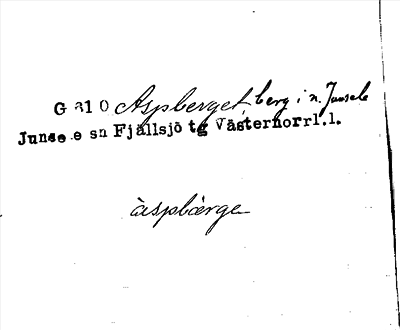 G 310 Aspberget, berg i n. Junsele
Junsele sn Fjällsjö tg Västernorrl.l.
àspbærge